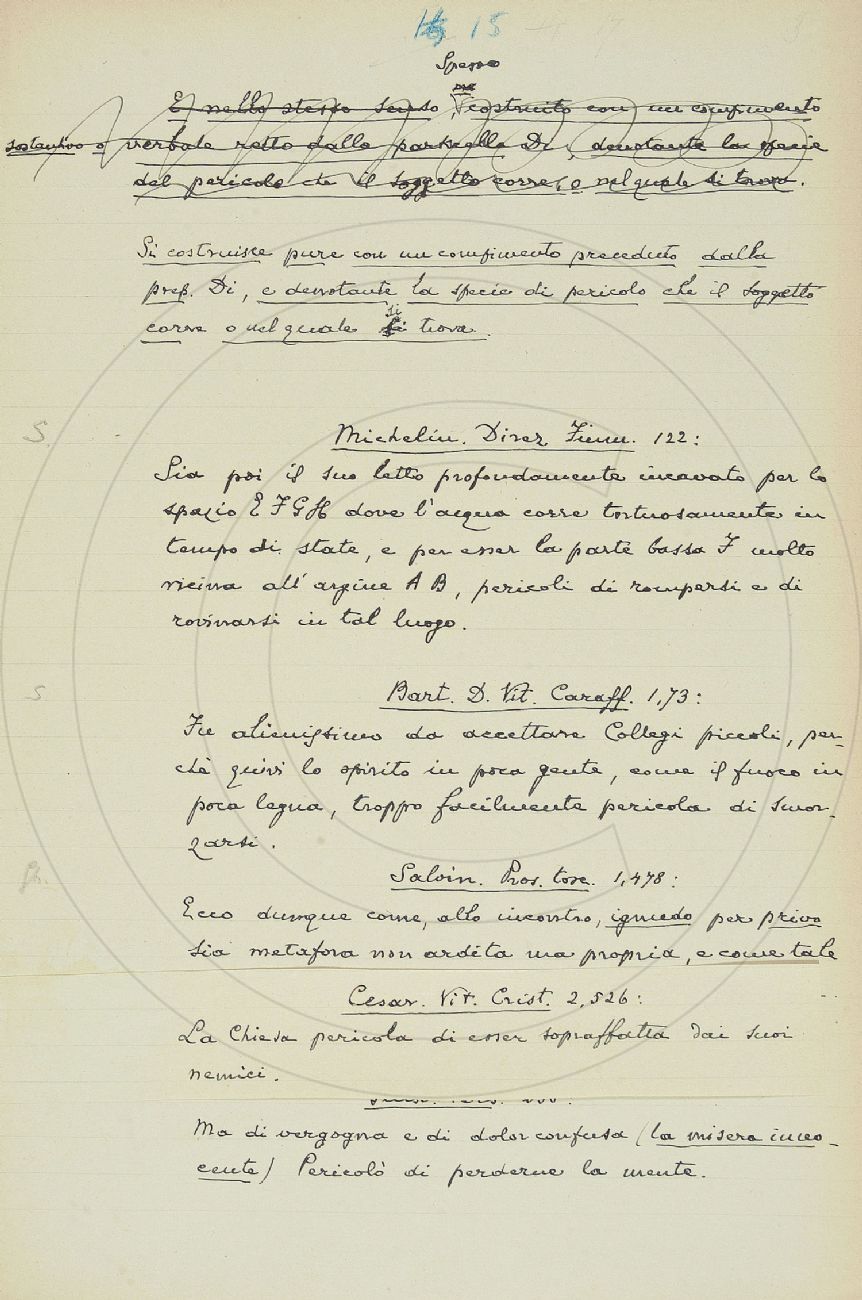 15
Spesso
E nello stesso senso costruito con un compimento
sostantivo o verbale retto dalla particella Di, denotante la specie
del pericolo che il soggetto corre, o nel quale si trova.
Si costruisce pure con un compimento preceduto dalla
prep. Di, e denotante la specie di pericolo che il soggetto
si
corre o nel quale trova.
S.
Michelin. Direz. Fium. 122:
Sia poi il suo letto profondamente incavato per lo
spazio E F G H dove l'acqua corre tortuosamente in
tempo di state, e per esser la parte bassa F molto
vicina all'argine A B, pericoli di rompersi e di
rovinarsi in tal luogo.
S
Bart. D. Vit. Caraff. 1,73:
Fu alienissimo da accettare Collegi piccoli, per-
chè quivi lo spirito in poca gente, come il fuoco in
poca legna, troppo facilmente pericola di smor-
zarsi.
Salvin. Pros. tosc. 1,478:
Ecco dunque come, allo incontro, ignudo per privo
sia metafora non ardita ma propria, e come tale
Cesar. Vit. Crist. 2,526:
La Chiesa pericola di esser sopraffatta dai suoi
nemici.
Ma di vergogna e di dolor confusa (la misera inno-
cente) Pericolò di perderne la mente.